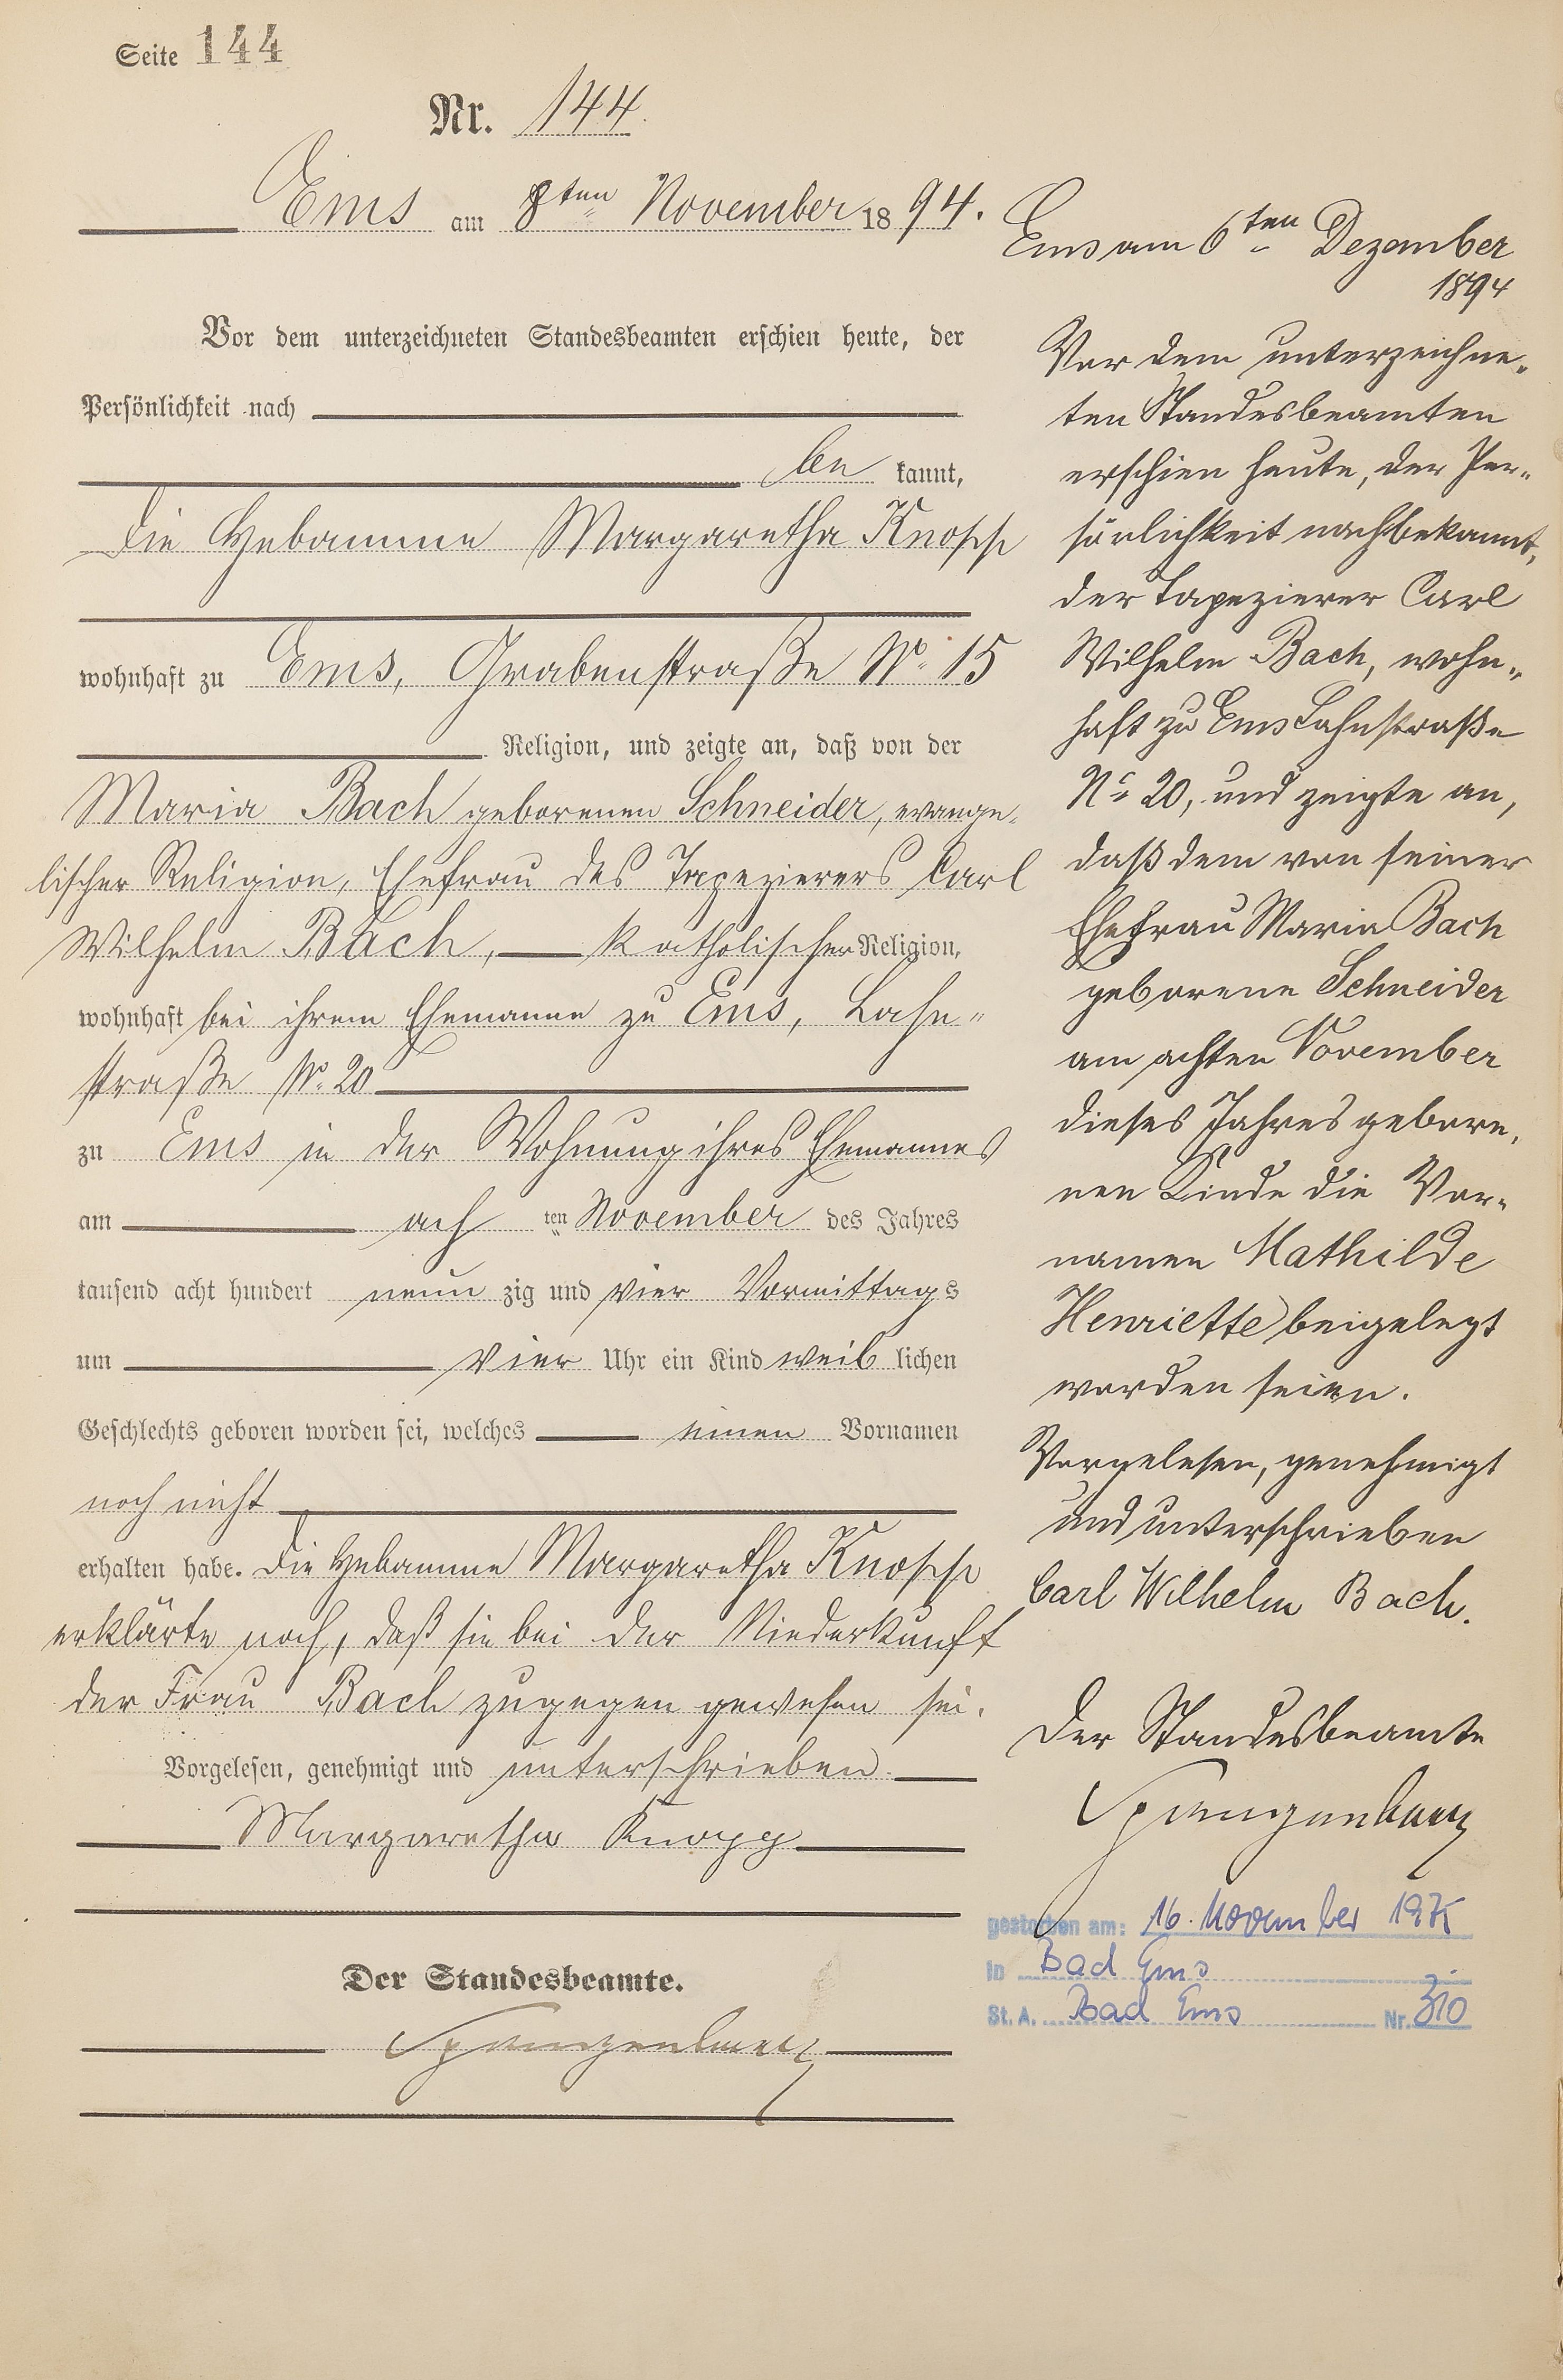 Seite 144
Nr. 144.
Ems am 8ten November 1894.
Vor dem unterzeichneten Standesbeamten erschien heute, der
Persönlichkeit nach
be kannt,
die Hebamme Margaretha Knopp
wohnhaft zu Ems, Grabenstraße No. 15
Religion, und zeigte an, daß von der
Maria Bach geborenen Schneider, evange-
lischer Religion, Ehefrau des Tapezierers Carl
Wilhelm Bach, katholischer Religion,
wohnhaft bei ihrem Ehemanne zu Ems, Lahn-
straße No. 20
zu Ems in der Wohnung ihres Ehemannes
am ach ten November des Jahres
tausend acht hundert neun zig und vier Vormittags
um vier Uhr ein Kind weib lichen
Geschlechts geboren worden sei, welches einen Vornamen
noch nicht
erhalten habe. Die Hebamme Margaretha Knopp
erklärte noch, daß sie bei der Niederkunft
der Frau Bach zugegen gewesen sei.
Vorgelesen, genehmigt und unterschrieben.
Margaretha Knopp
Der Standesbeamte.
Spangenberg
Ems am 6ten Dezember
1894
Vor dem unterzeichne-
ten Standesbeamten
erschien heute, der Per-
sönlichkeit nach bekannt,
der Tapezierer Carl
Wilhelm Bach, wohn-
haft zu Ems Lahnstraße
No 20, und zeigte an,
daß dem von seiner
Ehefrau Maria Bach
geborene Schneider
am achten November
dieses Jahres gebore-
nen Kinde die Vor-
namen Mathilde
Henriette beigelegt
worden seien.
Vorgelesen, genehmigt
und unterschrieben
Carl Wilhelm Bach.
Der Standesbeamte
Spangenberg
gestorben am: 16. November
in Bad Ems
St. A. Bad Ems Nr. 310